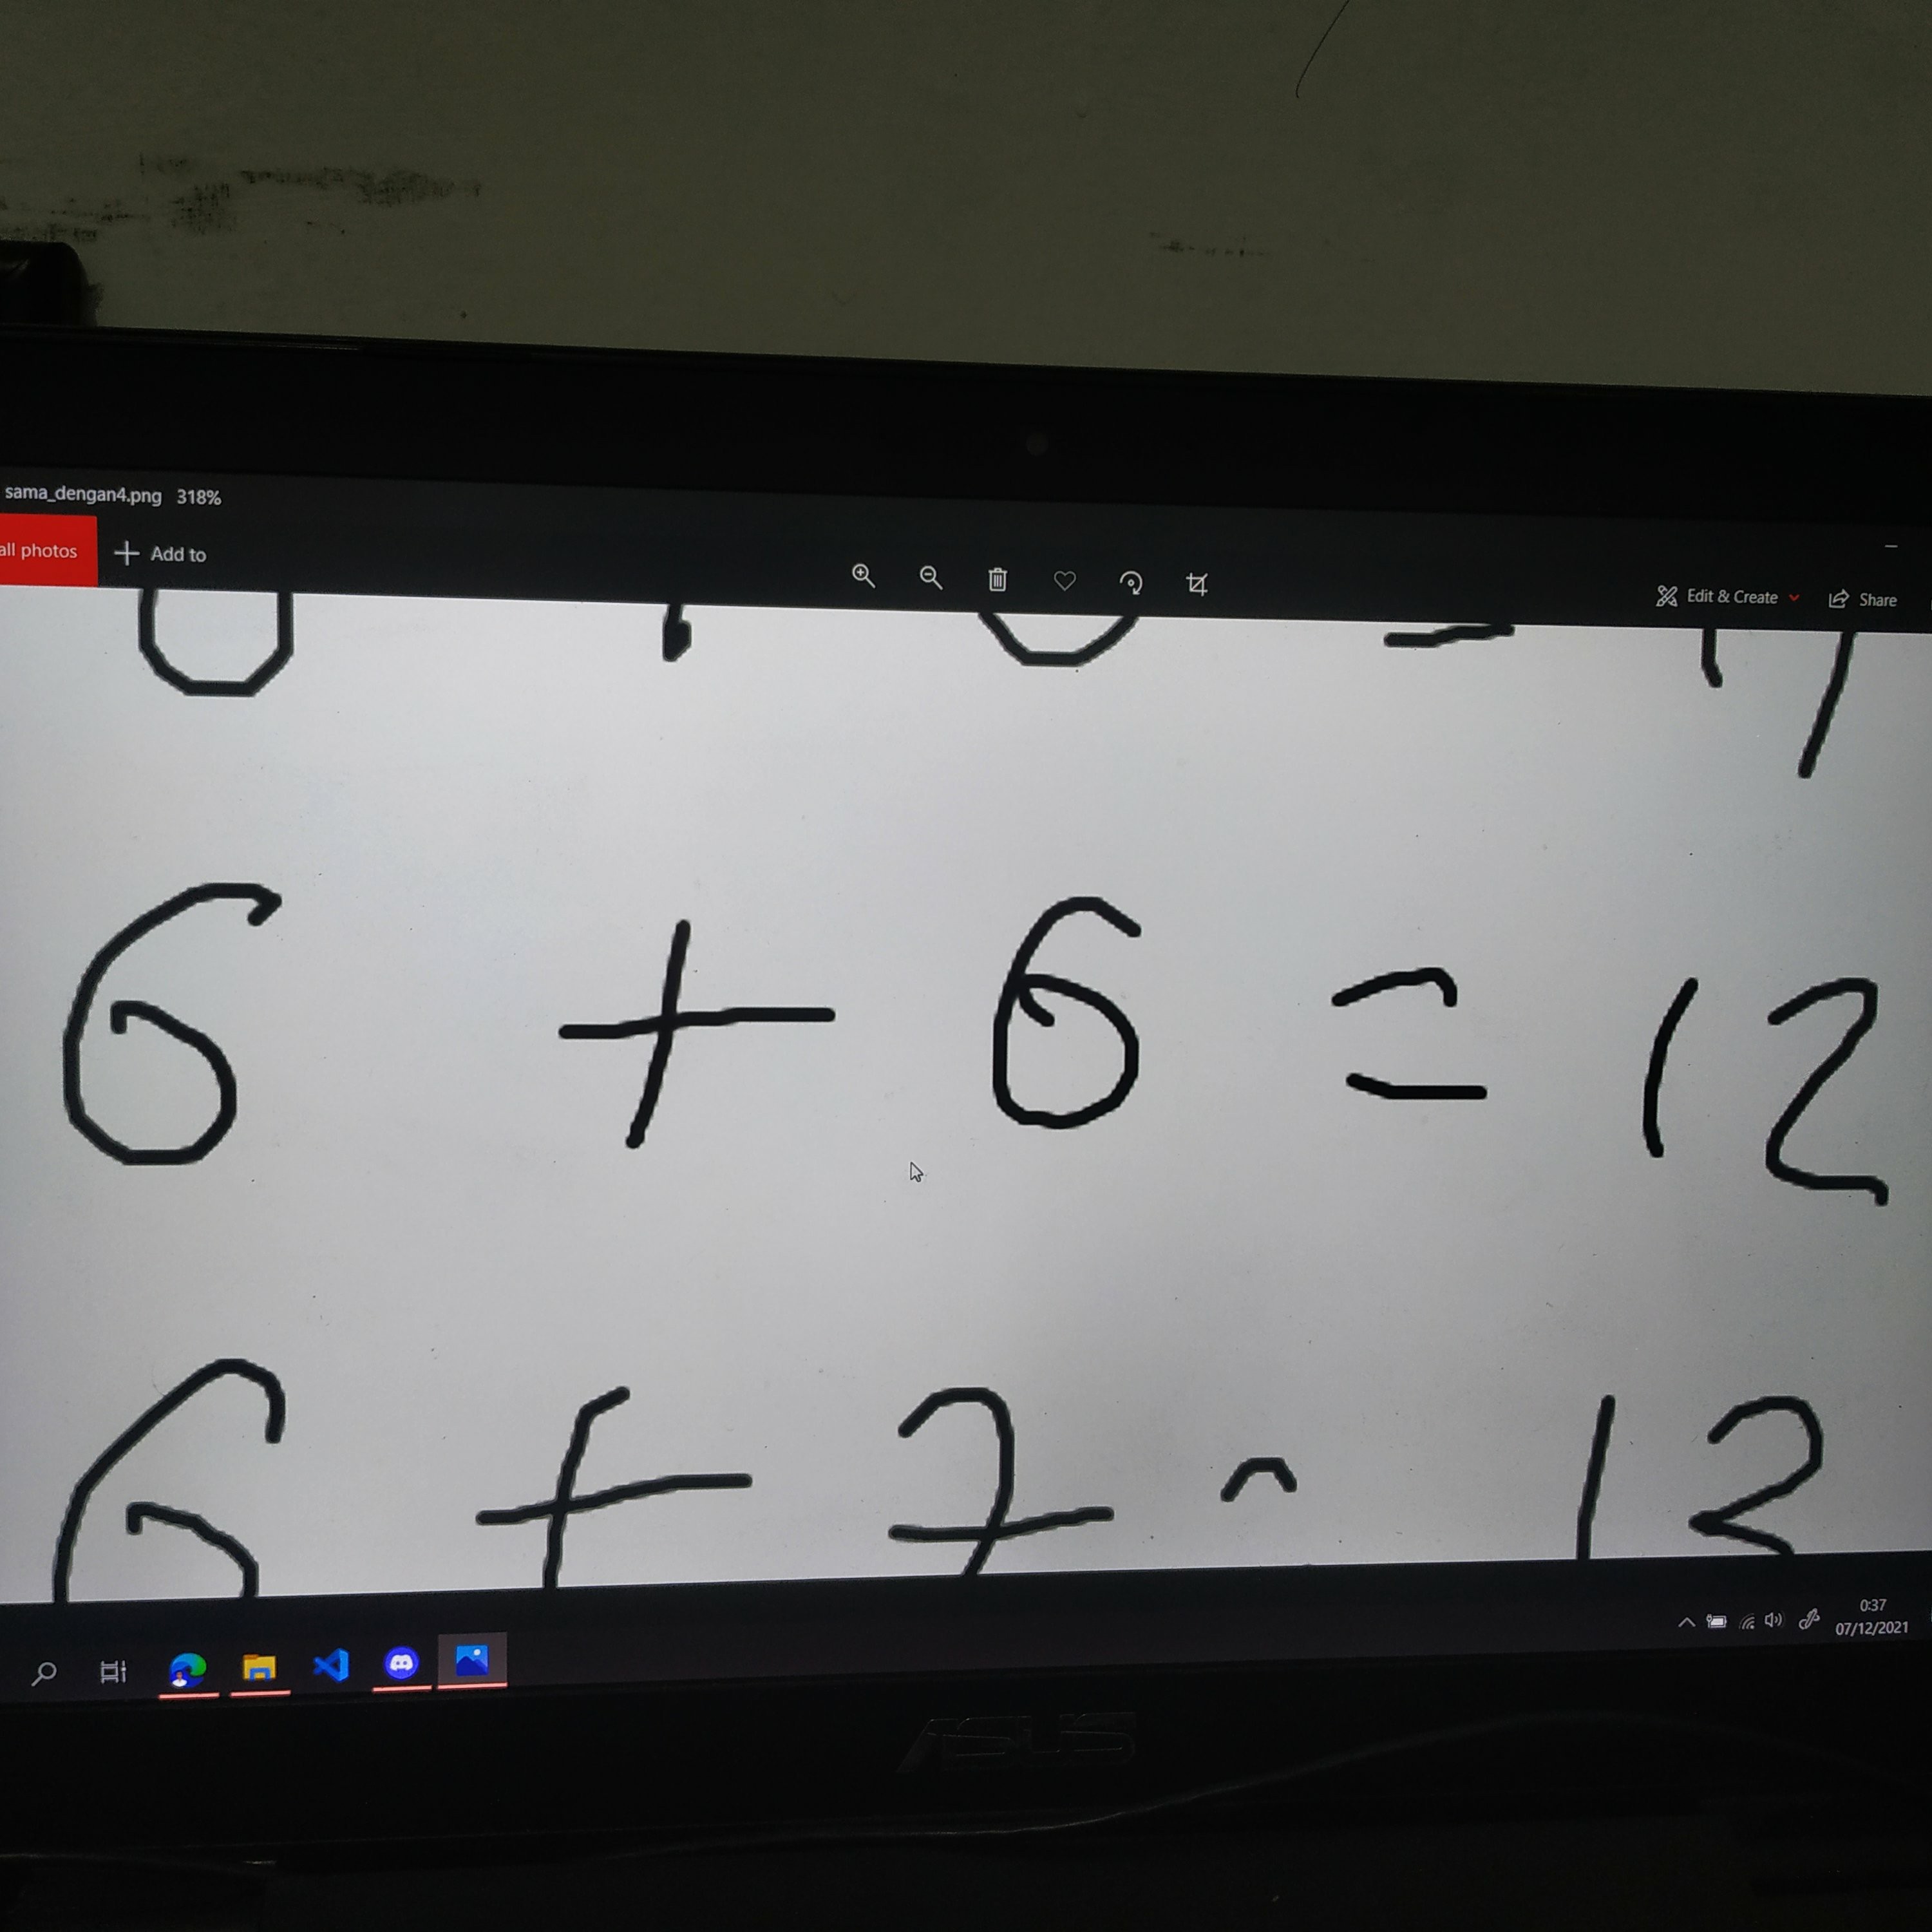 sama_dengan4.png 318%
all photos + Add to
Edit & Create Share
6 + 6 = 12
6 + 7
0:37
07/12/2021
ASUS